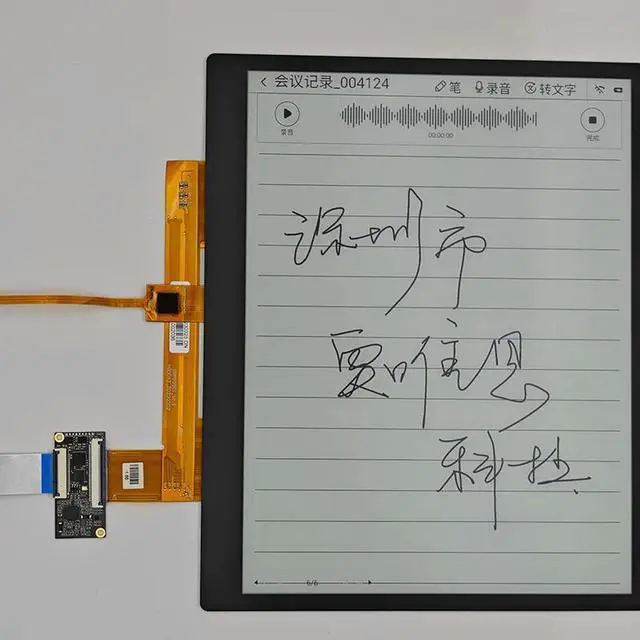 会议记录_004124
笔 录音 转文字
录音
00:00:00
完成
深圳市
贾唯思
科技
6/6